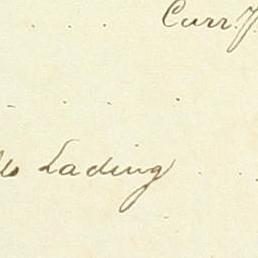 Curr.
Lading